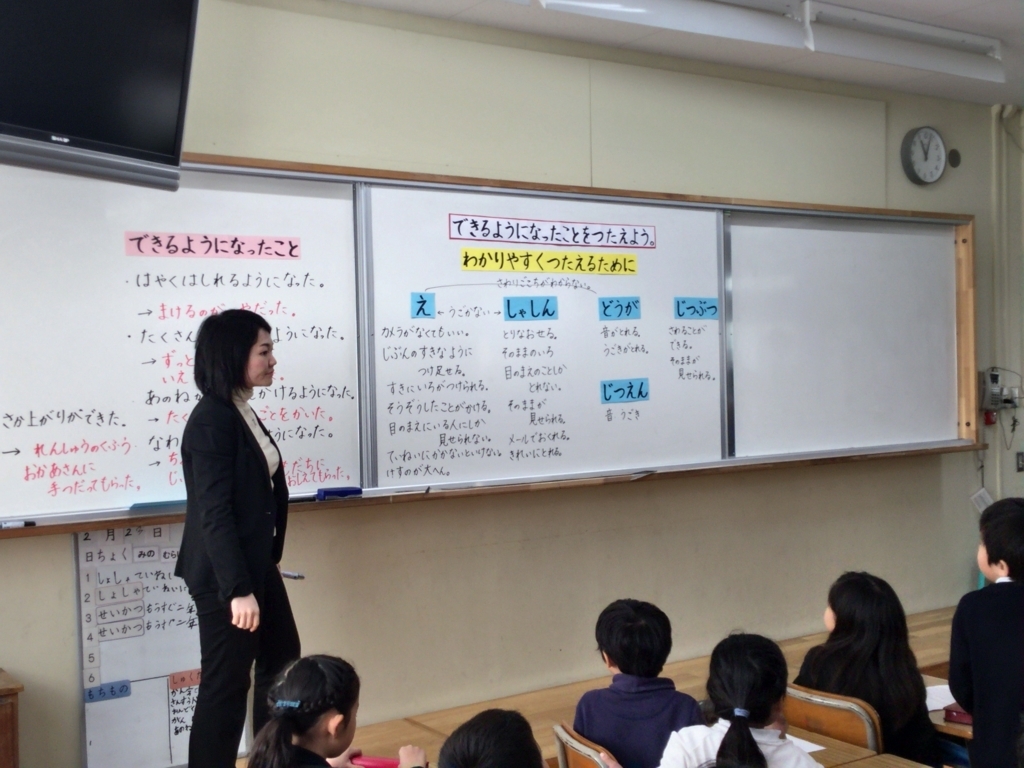 SHARP
できるようになったこと
・はやくはしれるようになった。
→まけるの だった。
・たくさん ようになった。
→ずっと
いえ
あのね かけるようになった。
→たく ことをかいた。
なわ うになった。
さか上がりができた。
→れんしゅうのくふう
おかあさんに
手つだってもらった。
できるようになったことをつたえよう。
わかりやすくつたえるために
さわりごこちがわからない。
え
←うごかない→
カメラがなくてもいい。
じぶんのすきなように
つけ足せる。
すきにいろがつけられる。
そうぞうしたことがかける。
目のまえにいる人にしか
見せられない。
ていねいにかかないといけない。
けすのが大へん。
しゃしん
とりなおせる。
そのままのいろ
目のまえのことしか
とれない。
そのままが
見せられる。
メールでおくれる。
きれいにとれる。
どうが
音がとれる。
うごきがとれる。
じつえん
音 うごき
じつぶつ
さわることが
できる。
そのままが
見せられる。
2 月 2 日
日ちょく みの むら
1 しょしゃ ていねい
2 しょしゃ ていねいに
3 せいかつ もうすぐ二年
4 せいかつ もうすぐ二年
5
6
もちもの